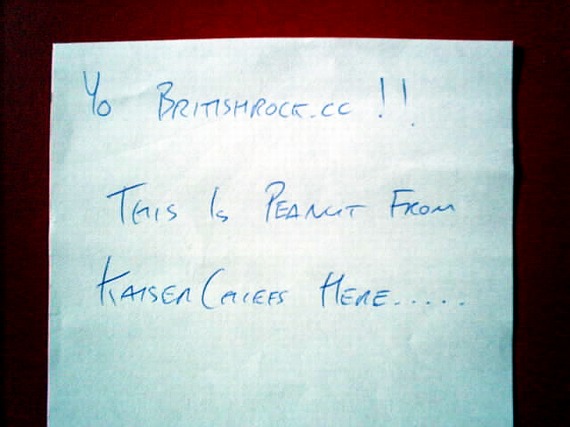 Yo BRITISHROCK.CC !!
THIS IS PEANUT FROM
KAISER CHIEFS HERE.....